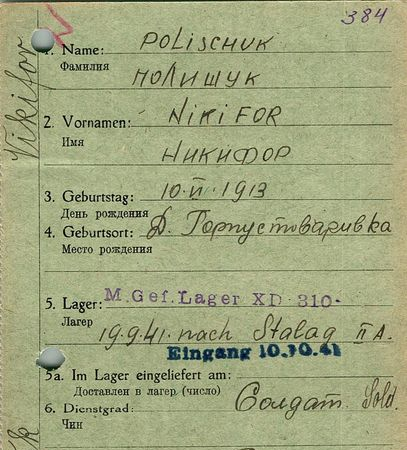 384
1. Name: POLISCHUK
Фамилия ПОЛИЩУК
2. Vornamen: NIKIFOR
Имя
НИКИФОР
3. Geburtstag: 10.VI.1913
День рождения
4. Geburtsort: Д. Горпустоваривка
Место рождения
5. Lager: M.Gef.Lager XD 310-
Лагер
19.9.41. nach Stalag II A.
Eingang 10.10.41
5a. Im Lager eingeliefert am:
Доставлен в лагер (число)
6. Dienstgrad: Солдат. Sold.
Чин
Nikifor